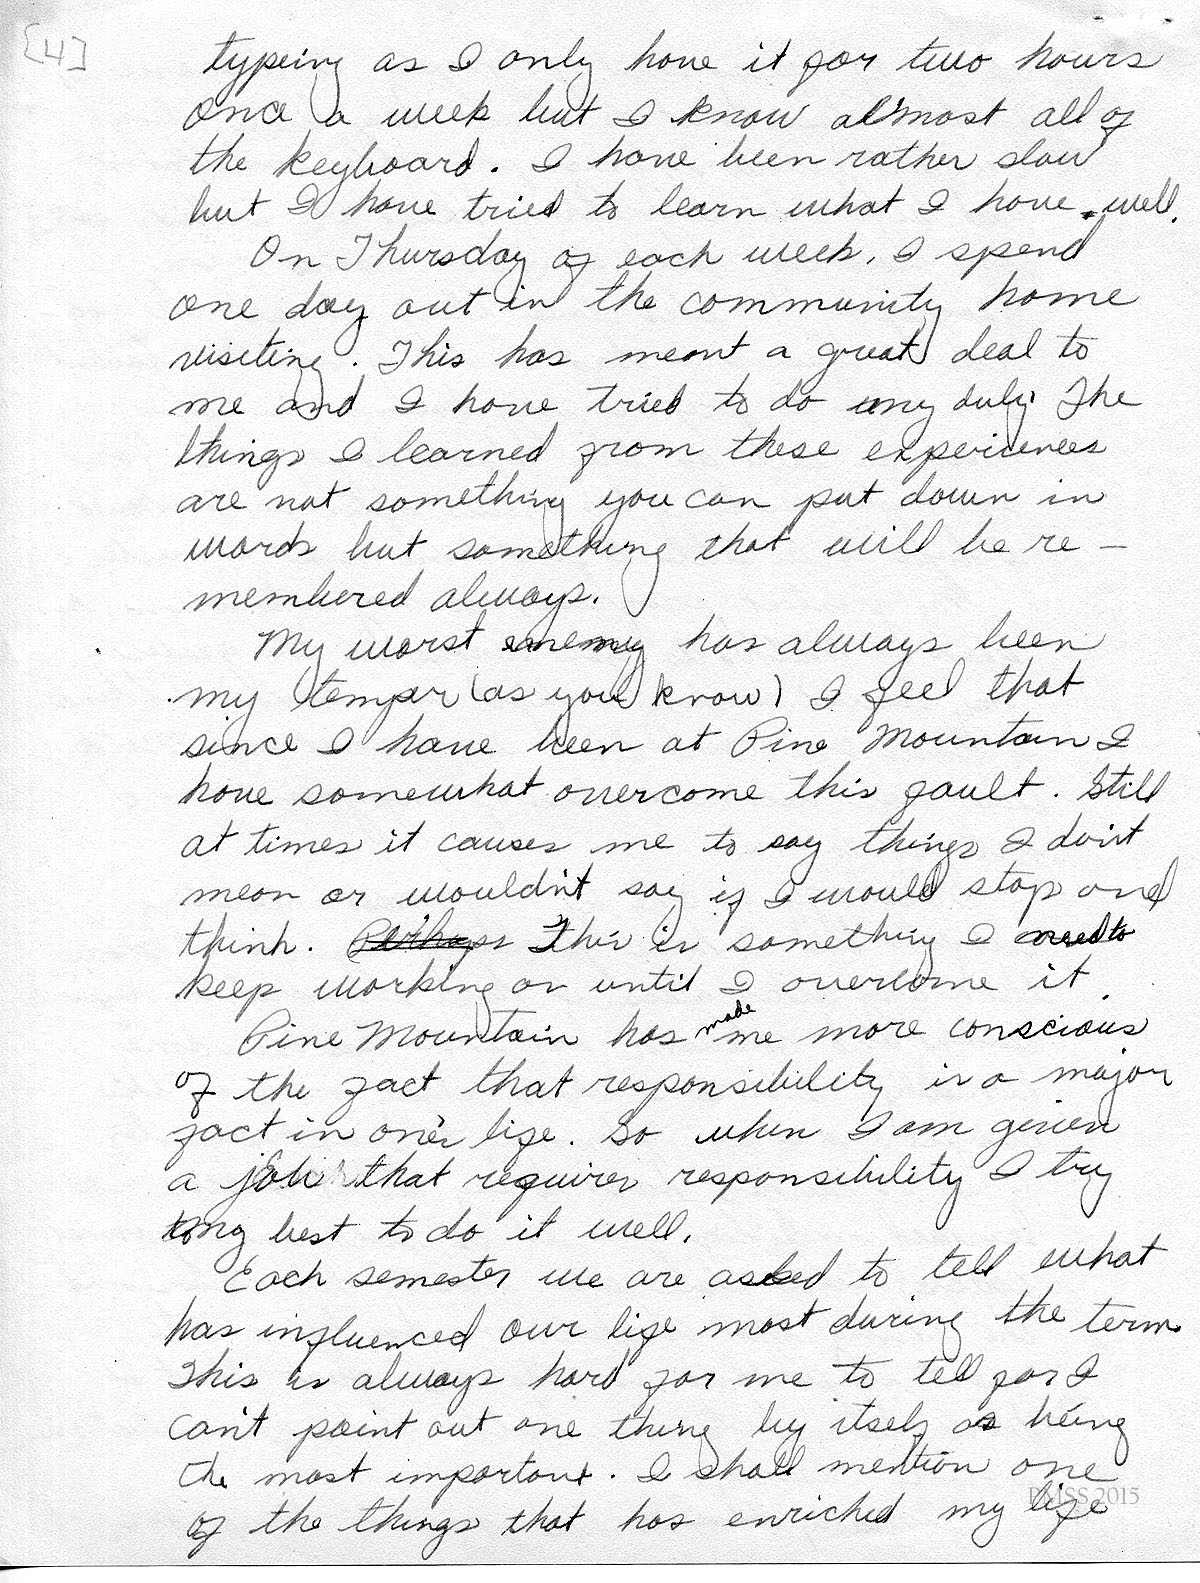 [4]
typeing as I only have it for two hours
once a week but I know almost all of
the keyboard. I have been rather slow
but I have tried to learn what I have well.
On Thursday of each week, I spend
one day out in the community home
visiting. This has meant a great deal to
me and I have tried to do my duty. The
things I learned from these experiences
are not something you can put down in
words but something that will be re-
membered always.
My worst enemy has always been
my temper (as you know) I feel that
since I have been at Pine Mountain I
have somewhat overcome this fault. Still
at times it causes me to say things I don't
mean or wouldn't say if I would stop and
think. Perhaps This is something I need to
keep working on until I overcome it.
Pine Mountain has made me more conscious
of the fact that responsibility is a major
fact in one's life. So when I am given
a job that requires responsibility I try
my best to do it well.
Each semester we are asked to tell what
has influenced our life most during the term
This is always hard for me to tell for I
can't point out one thing by itself as being
the most important. I shall mention one
of the things that has enriched my life
PMSS 2015